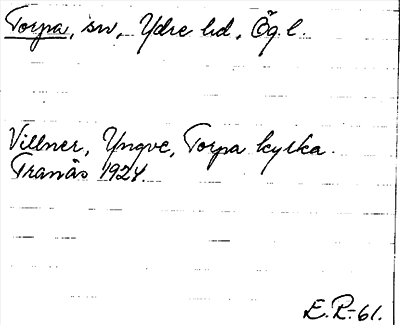 Torpa, sn, Ydre hd, Ög l.
Villner, Yngve, Torpa kyrka.
Tranås 1924.
E.R-61.